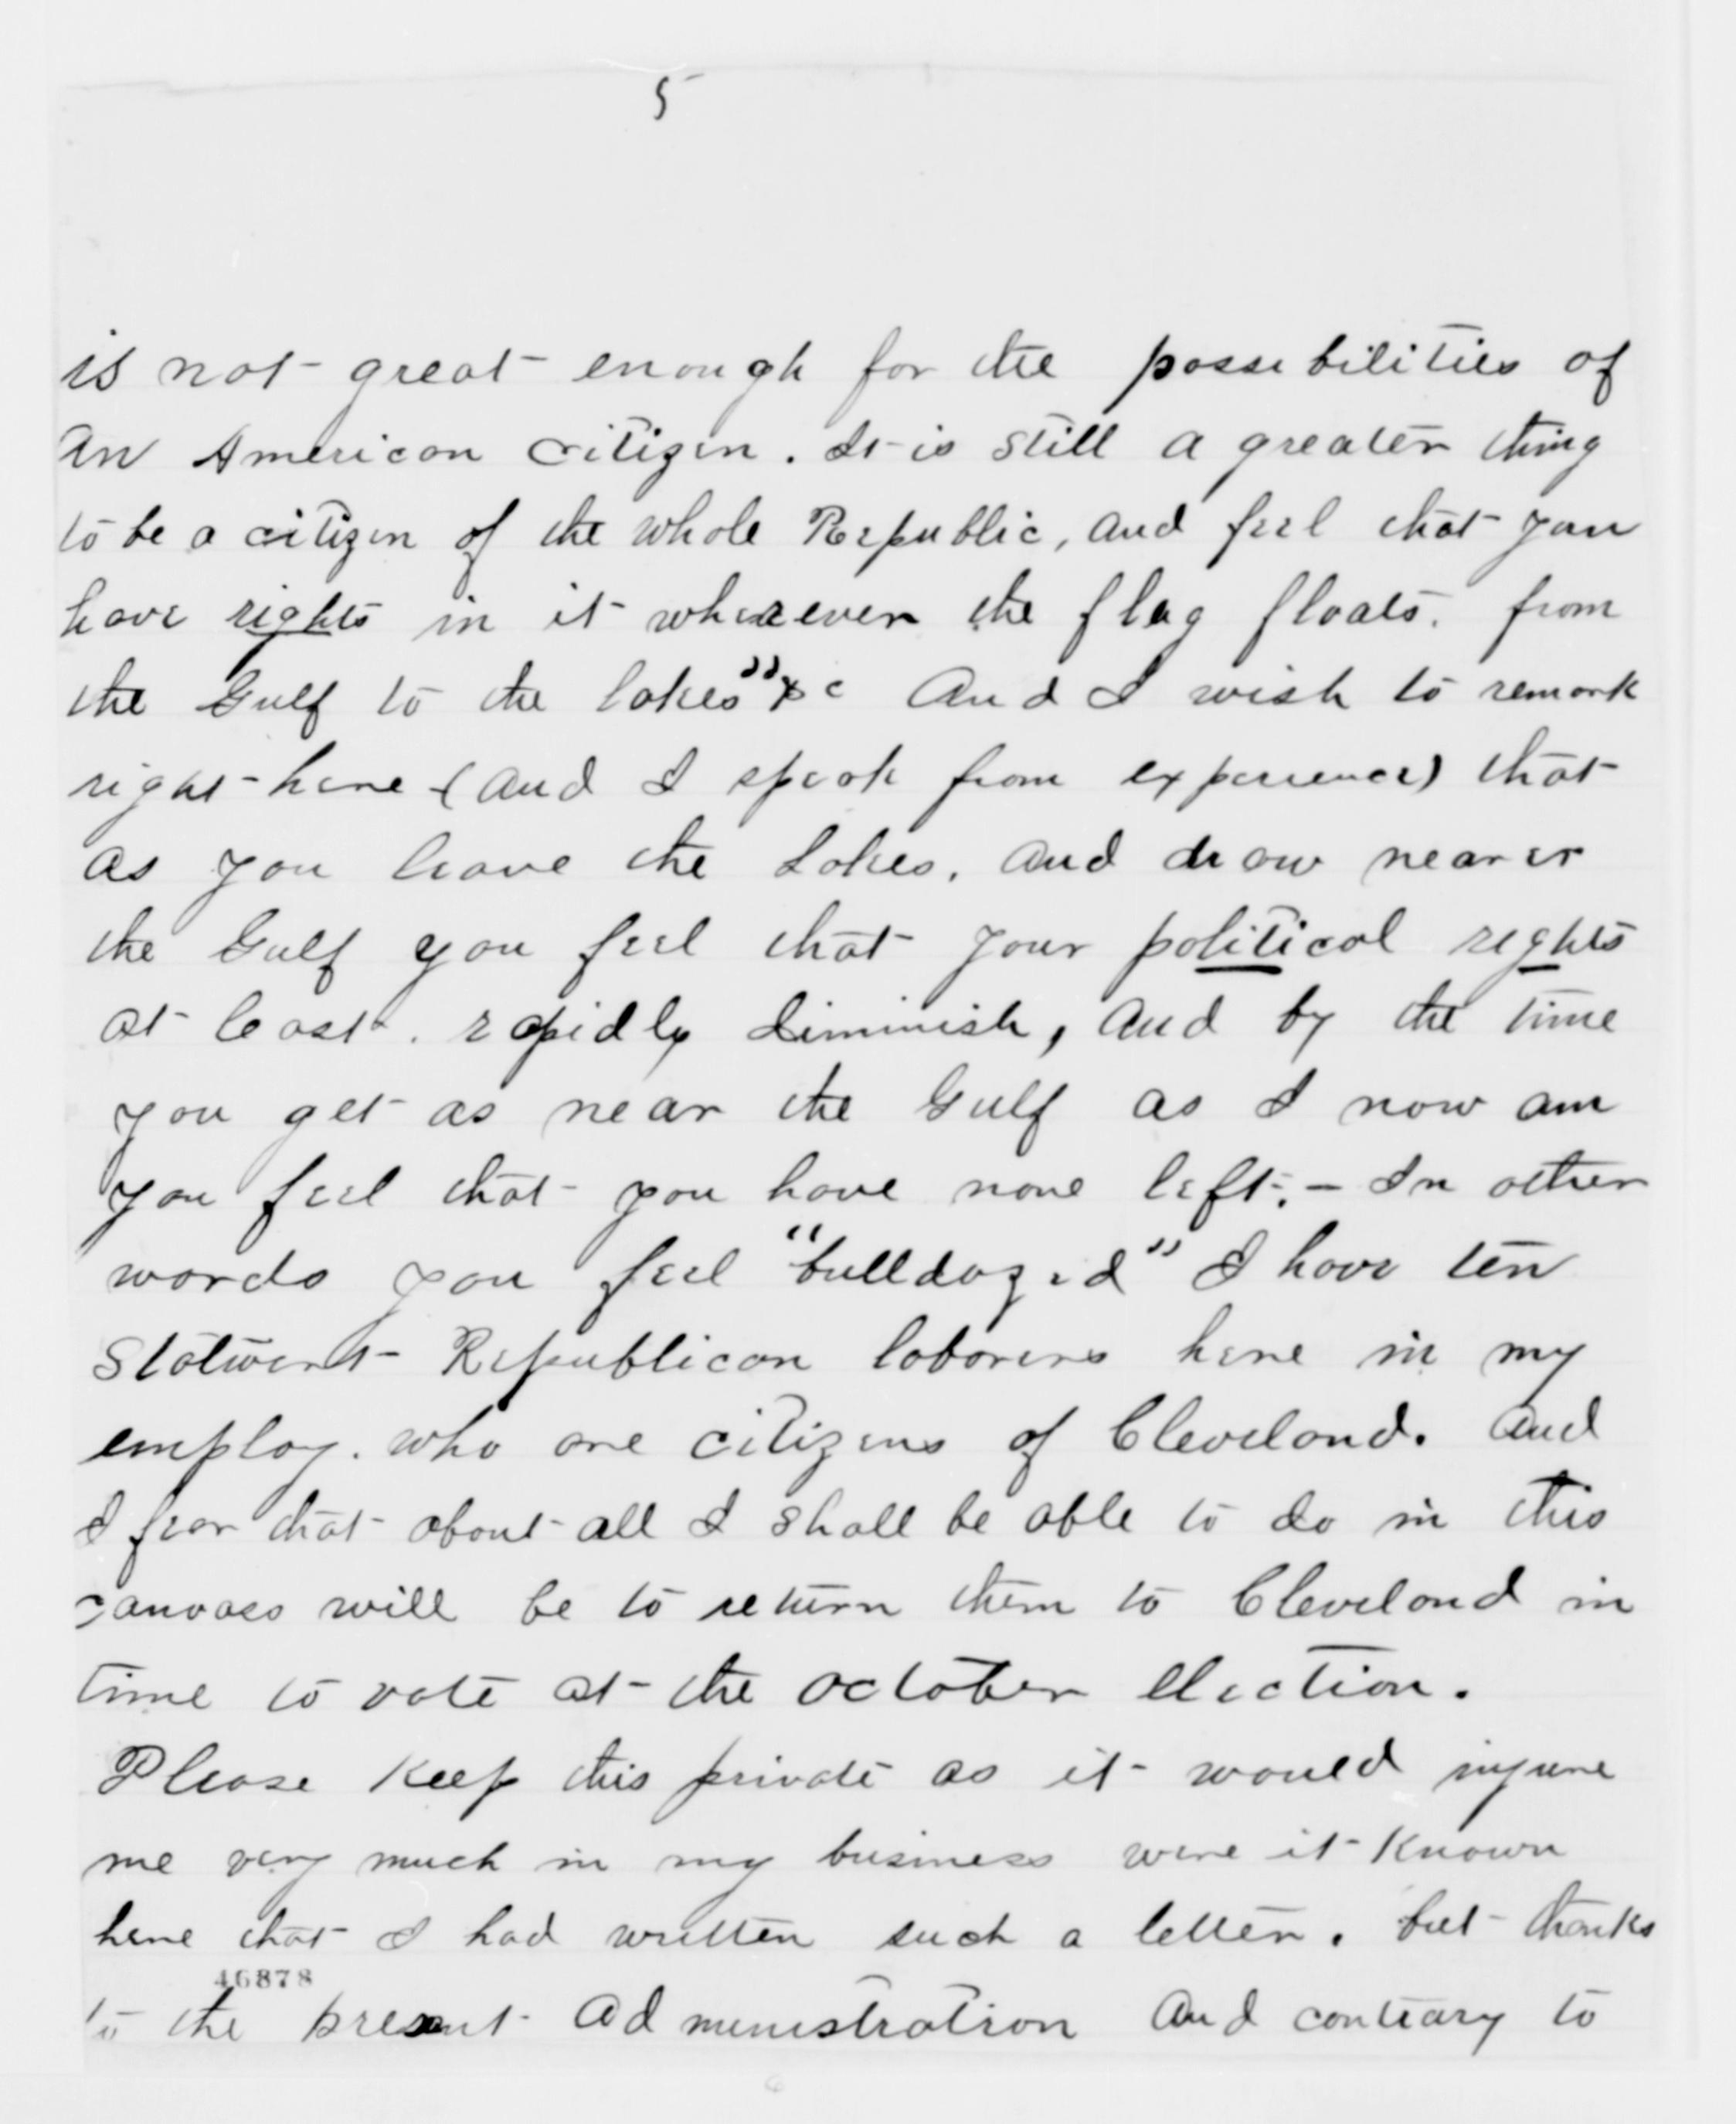 5
is not great enough for the possibilities of
an American citizen. It is still a greater thing
to be a citizen of the whole Republic, and feel that you
have rights in it wherever the flag floats. from
the Gulf to the lakes" &c And I wish to remark
right here (and I speak from experience) that
as you leave the Lakes, and draw nearer
the Gulf you feel that your political rights
at least. rapidly diminish, and by the time
you get as near the Gulf as I now am
you feel that you have none left. - In other
words you feel "bulldozed" I have ten
Stalwart Republican laborers here in my
employ. who are citizens of Cleveland. And
I fear that about all I shall be able to do in this
canvass will be to return them to Cleveland in
time to vote at the October Election.
Please Keep this private as it would injure
me very much in my business were it Known
here that I had written such a letter. but thanks
46878
to the present Administration and contrary to